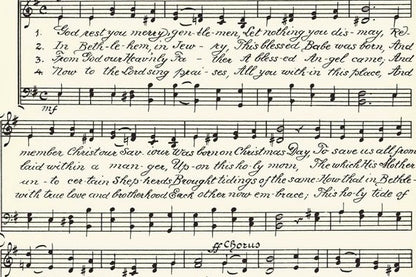 1. God rest you merry, gen-tle-men, Let nothing you dis-may, Re-
2. In Beth-le-hem, in Jew-ry, This blessed Babe was born, And
3. From God our Heav'nly Fa-ther A bless-ed An-gel came; And
4. Now to the Lord sing prai-ses, All you with in this place, And
mf
member Christ our Sav-iour Was born on Christmas Day, To save us all from
laid within a man-ger, Up-on this ho-ly morn, The which His Mother
un-to cer-tain Shep-herds Brought tidings of the same How that in Bethle-
with true love and brotherhood Each other now em-brace; This ho-ly tide of
ff Chorus